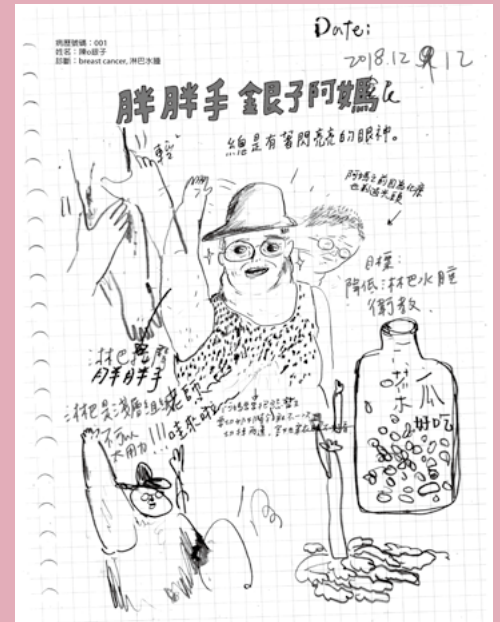 病歷號碼：001
姓名：陳o銀子
診斷：breast cancer, 淋巴水腫
Date:
2018.12 12
胖胖手 銀子阿嬤
總是有著閃亮亮的眼神。
輕
阿嬤之前因為化療
也剃過光頭
目標：
降低淋巴水腫
衛教
淋巴按摩
胖胖手
淋巴是淺層組織
不可以
太用力!!!
老師
哇來啦
木瓜
好吃